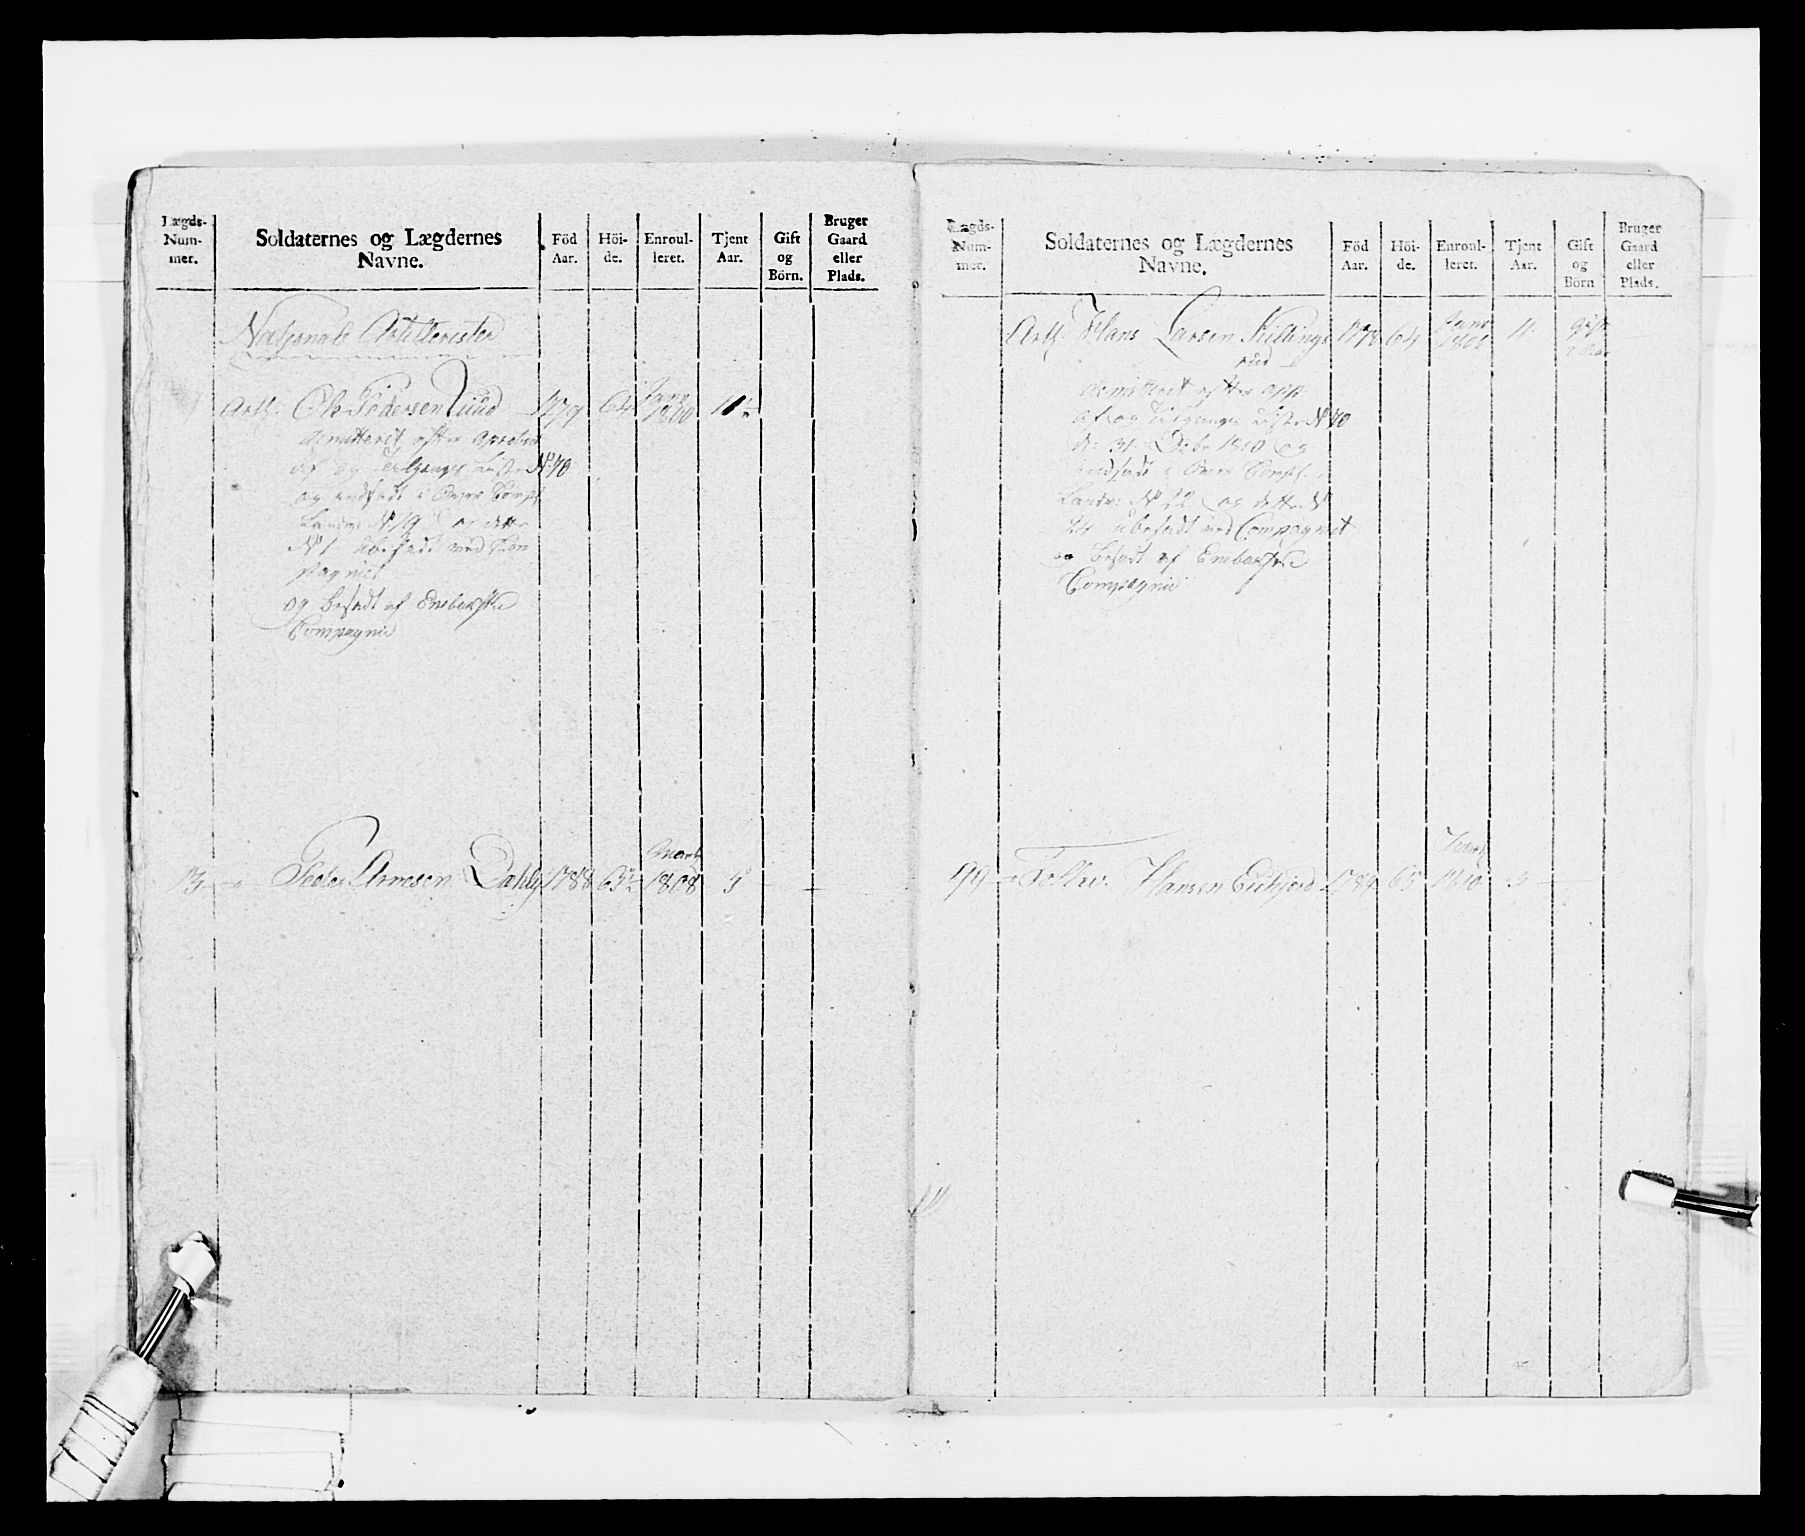 Lægds-
Num-
mer.
Soldaternes og Lægdernes
Navne.
Föd
Aar.
Höi-
de.
Enroul-
leret.
Tjent
Aar.
Gift
og
Börn.
Bruger
Gaard
eller
Plads.
National Artillerister
Art: Ole Pedersen Ruud 1779 64 Janv 1800 11
demitteret efter Aprobert
Af og Tilgangs Liste No 70
og indsadt i Ager Comp:
Landv: No 19 og dette
No 1 ubesadt ved Com
pagniet
og besadt af Enebakske
Compagnie
13 Peder Arnesen Dahly 1788 63 Marty 1808 3
Lægds-
Num-
mer.
Soldaternes og Lægdernes
Navne.
Föd
Aar.
Höi-
de.
Enroul-
leret.
Tjent
Aar.
Gift
og
Börn
Bruger
Gaard
eller
Plads.
Art: Hans Larsen Killings 1778 64 Janv 1800 11 gift
rud
demitteret efter app:
af og Tilgangs Liste No 70
d: 31 Debr 1810 og
indsadt i Ager Comp:
Landv: No 22 og dette No
24 ubesadt ved Compagniet
og besadt af Enebakske
Compagnie
99 Tollev Hansen 65 1810 3